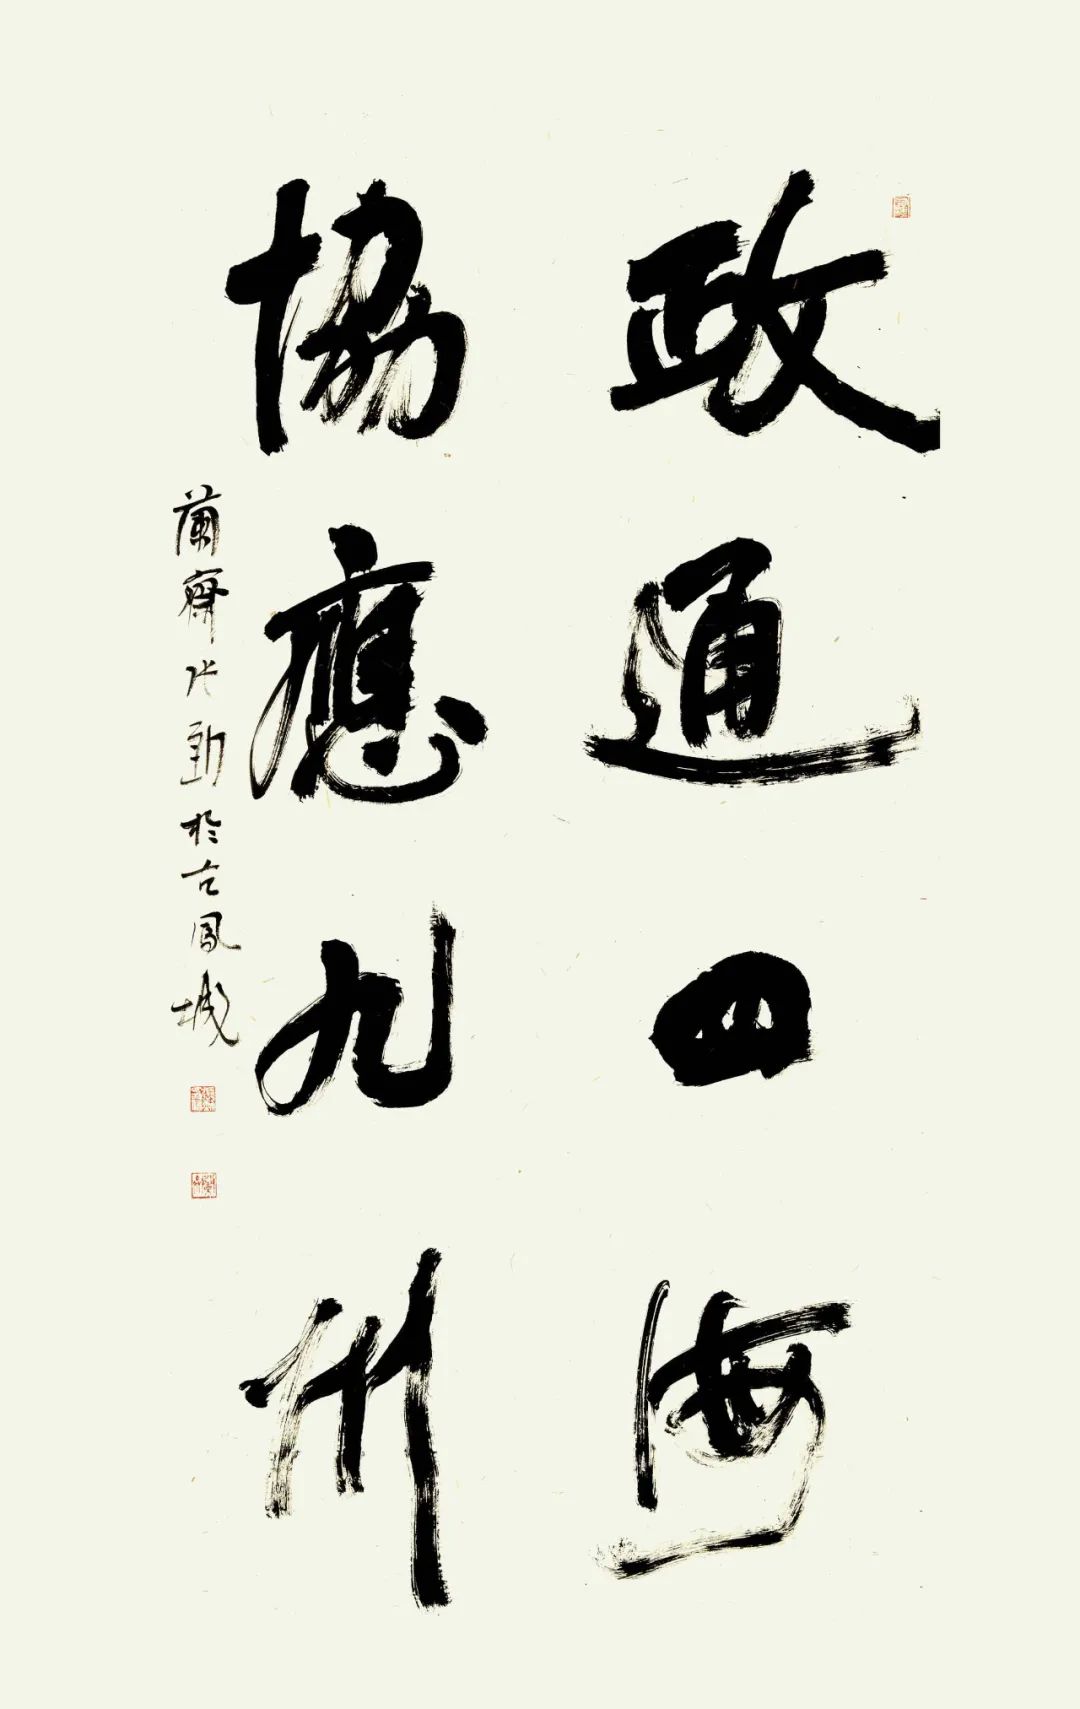 政通四海
協應九州
蘭齋張勤於古鳳城